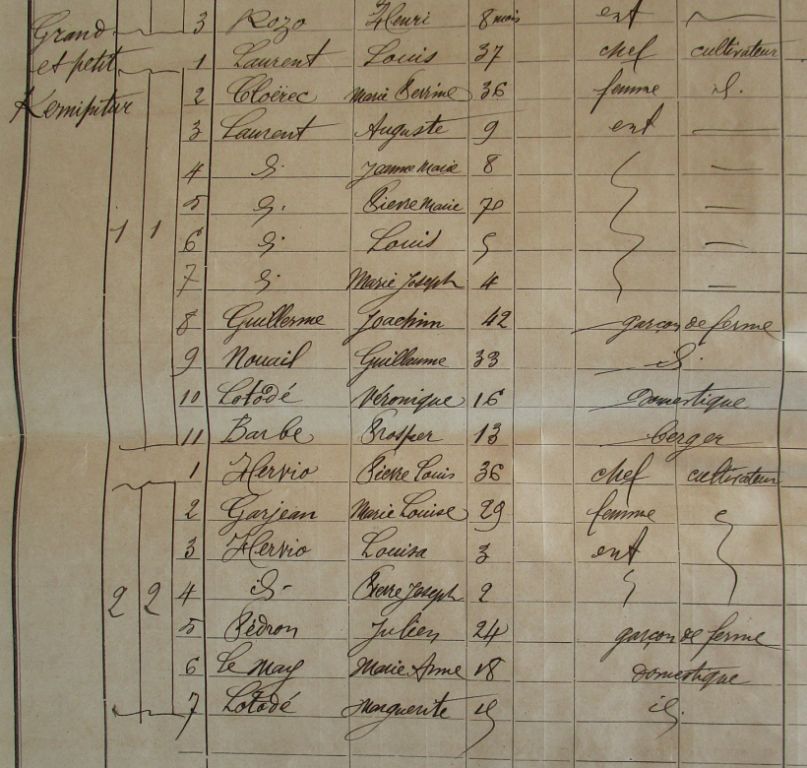 3 Rozo Henri 8 mois ent
Grand
1 Laurent Louis 37 chef cultivateur
et petit
2 Cloërec Marie Perrine 36 femme id.
3 Laurent Auguste 9 ent
4 id. Jeanne Marie 8
5 id. Pierre Marie 7
1 1
6 id. Louis 5
7 id. Marie Joseph 4
8 Guillerme Joachim 42 garçon de ferme
9 Nouail Guillaume 33 id.
10 Lotodé Véronique 16 domestique
11 Barbe Prosper 13 berger
1 Hervio Pierre Louis 36 chef cultivateur
2 Garjean Marie Louise 29 femme
3 Hervio Louisa 3 ent
4 id. Pierre Joseph 2
2 2
5 Pédron Julien 24 garçon de ferme
6 Le May Marie Anne 18 domestique
7 Lotodé Marguerite id.